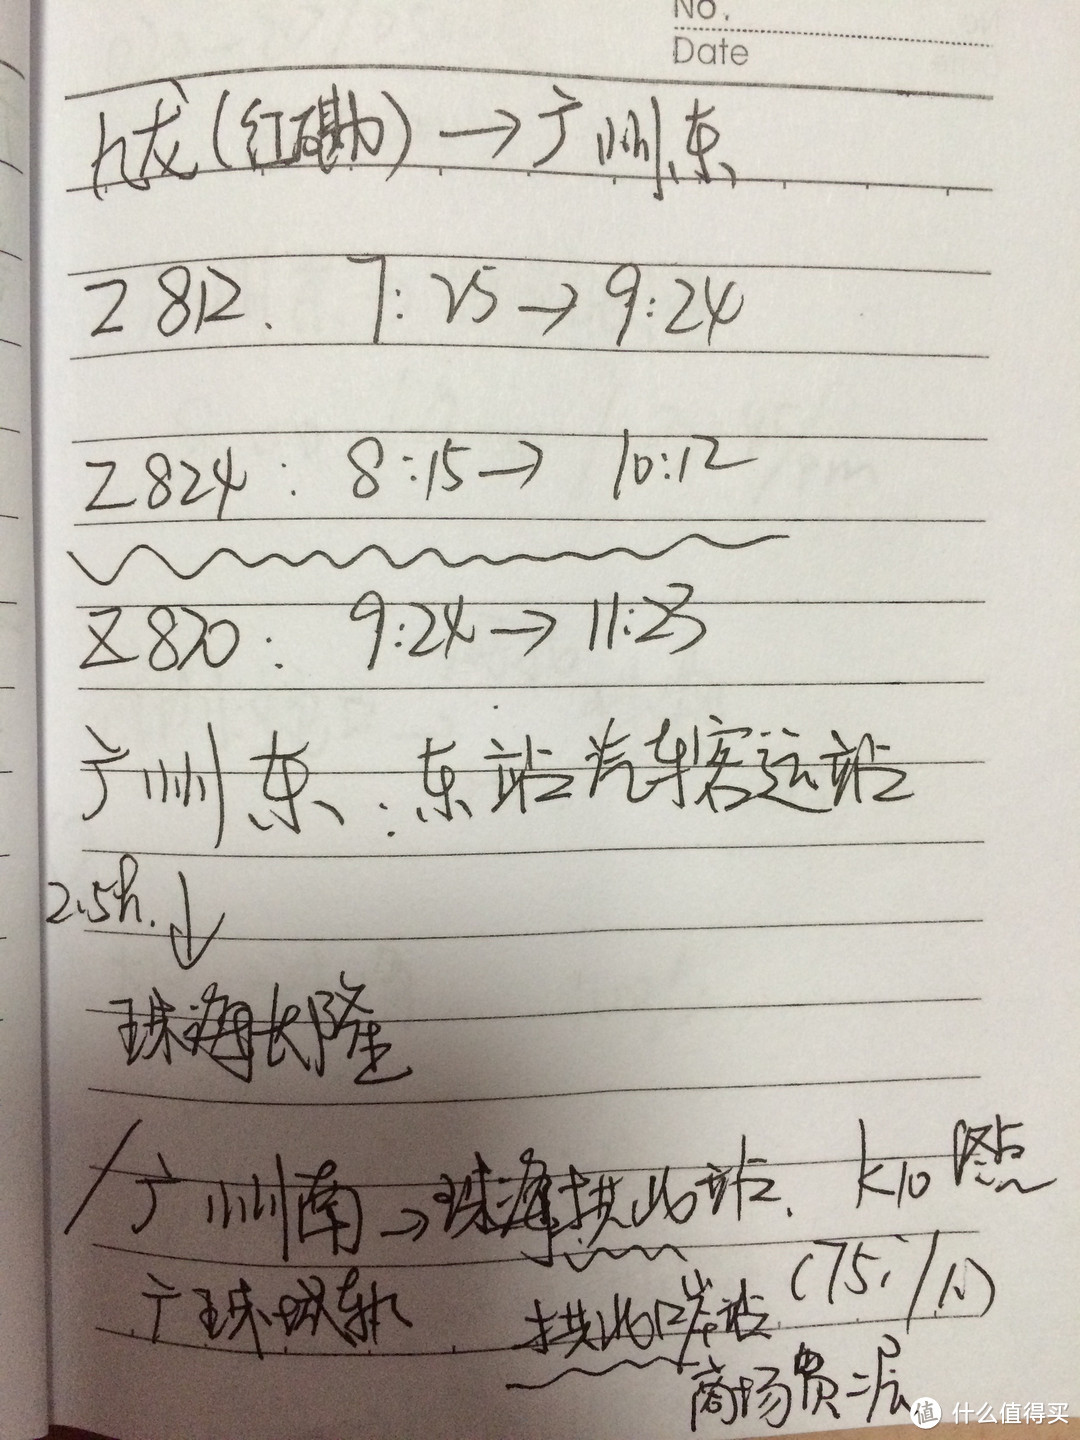 No.
Date
九龙(红磡)→广州东
Z812. 7:25→9:24
Z824: 8:15→ 10:12
Z820: 9:24→11:23
广州东:东站汽车客运站
2.5h. ↓
珠海长隆
/广州南→珠海拱北站. K10
广珠城轨 拱北口岸站 (75 /人)
商场 二层
值 什么值得买